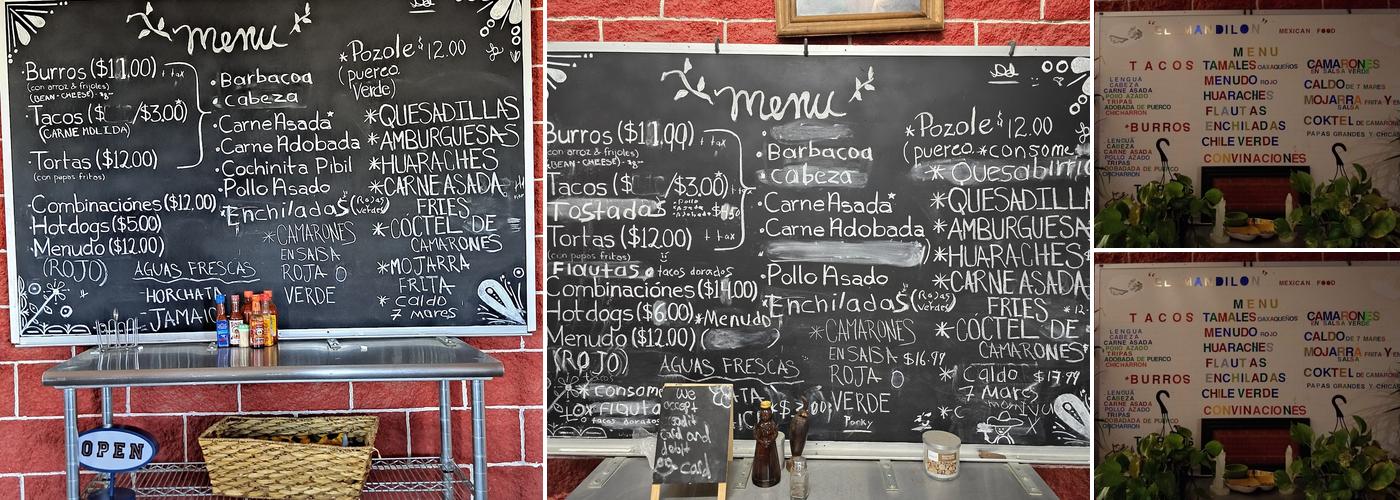 menu
Burros ($11.00) + tax
(con arroz & frijoles)
(BEAN-CHEESE)
Tacos ($ /$3.00)
(CARNE MOLIDA)
Tortas ($12.00)
(con papas fritas)
Combinaciónes ($12.00)
Hotdogs ($5.00)
Menudo ($12.00)
(ROJO)
Barbacoa
cabeza
Carne Asada*
Carne Adobada
Cochinita Pibil
Pollo Asado
Enchiladas (Rojas
Verdes)
*CAMARONES
EN SALSA
ROJA O
VERDE
AGUAS FRESCAS
-HORCHATA
-JAMAIC
*Pozole $12.00
(puerco
Verde)
*QUESADILLAS
*AMBURGUESAS
*HUARACHES
*CARNE ASADA
FRIES
*COCTEL DE
CAMARONES
*MOJARRA
FRITA
*Caldo
7 mares
OPEN
menu
Burros ($11.00) + tax
(con arroz & frijoles)
(BEAN-CHEESE)
Tacos ($ /$3.00)
Tostadas
Tortas ($12.00) + tax
(con papas fritas)
Flautas o tacos dorados
Combinaciónes ($14.00)
Hotdogs ($6.00) *Menudo
Menudo ($12.00)
(ROJO)
*consom
tacos dorados
Barbacoa
cabeza
Carne Asada*
Carne Adobada
Pollo Asado
Enchiladas (Rojas
Verdes)
*CAMARONES
EN SALSA $16.99
ROJA O
VERDE
AGUAS FRESCAS
*Pozole $12.00
(puerco *consome
*Quesabirria
*QUESADILLA
*AMBURGUESA
*HUARACHES
*CARNE ASADA
FRIES
*COCTEL DE
CAMARONES
*Caldo $17.99
7 Mares
we
accept
credit
card and
debit
card
"EL MANDILON" MEXICAN FOOD
MENU
TACOS
LENGUA
CABEZA
CARNE ASADA
POLLO AZADO
TRIPAS
ADOBADA DE PUERCO
CHICHARRON
*BURROS
LENGUA
CABEZA
CARNE ASADA
POLLO AZADO
TRIPAS
ADOBADA DE PUERCO
CHICHARRON
TAMALES OAXAQUEÑOS
MENUDO ROJO
HUARACHES
FLAUTAS
ENCHILADAS
CHILE VERDE
CONVINACIONES
CAMARONES
EN SALSA VERDE
CALDO DE 7 MARES
MOJARRA FRITA Y
SALSA
COKTEL DE CAMARON
PAPAS GRANDES Y CHICAS
"EL MANDILON" MEXICAN FOOD
MENU
TACOS
LENGUA
CABEZA
CARNE ASADA
POLLO AZADO
TRIPAS
ADOBADA DE PUERCO
CHICHARRON
*BURROS
LENGUA
CABEZA
CARNE ASADA
POLLO AZADO
TRIPAS
ADOBADA DE PUERCO
CHICHARRON
TAMALES OAXAQUEÑOS
MENUDO ROJO
HUARACHES
FLAUTAS
ENCHILADAS
CHILE VERDE
CONVINACIONES
CAMARONES
EN SALSA VERDE
CALDO DE 7 MARES
MOJARRA FRITA Y
SALSA
COKTEL DE CAMARON
PAPAS GRANDES Y CHICAS